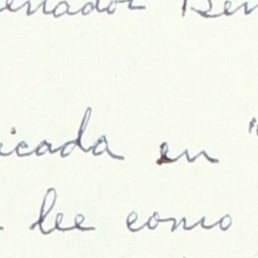 enador Ben
icada en "
lee como